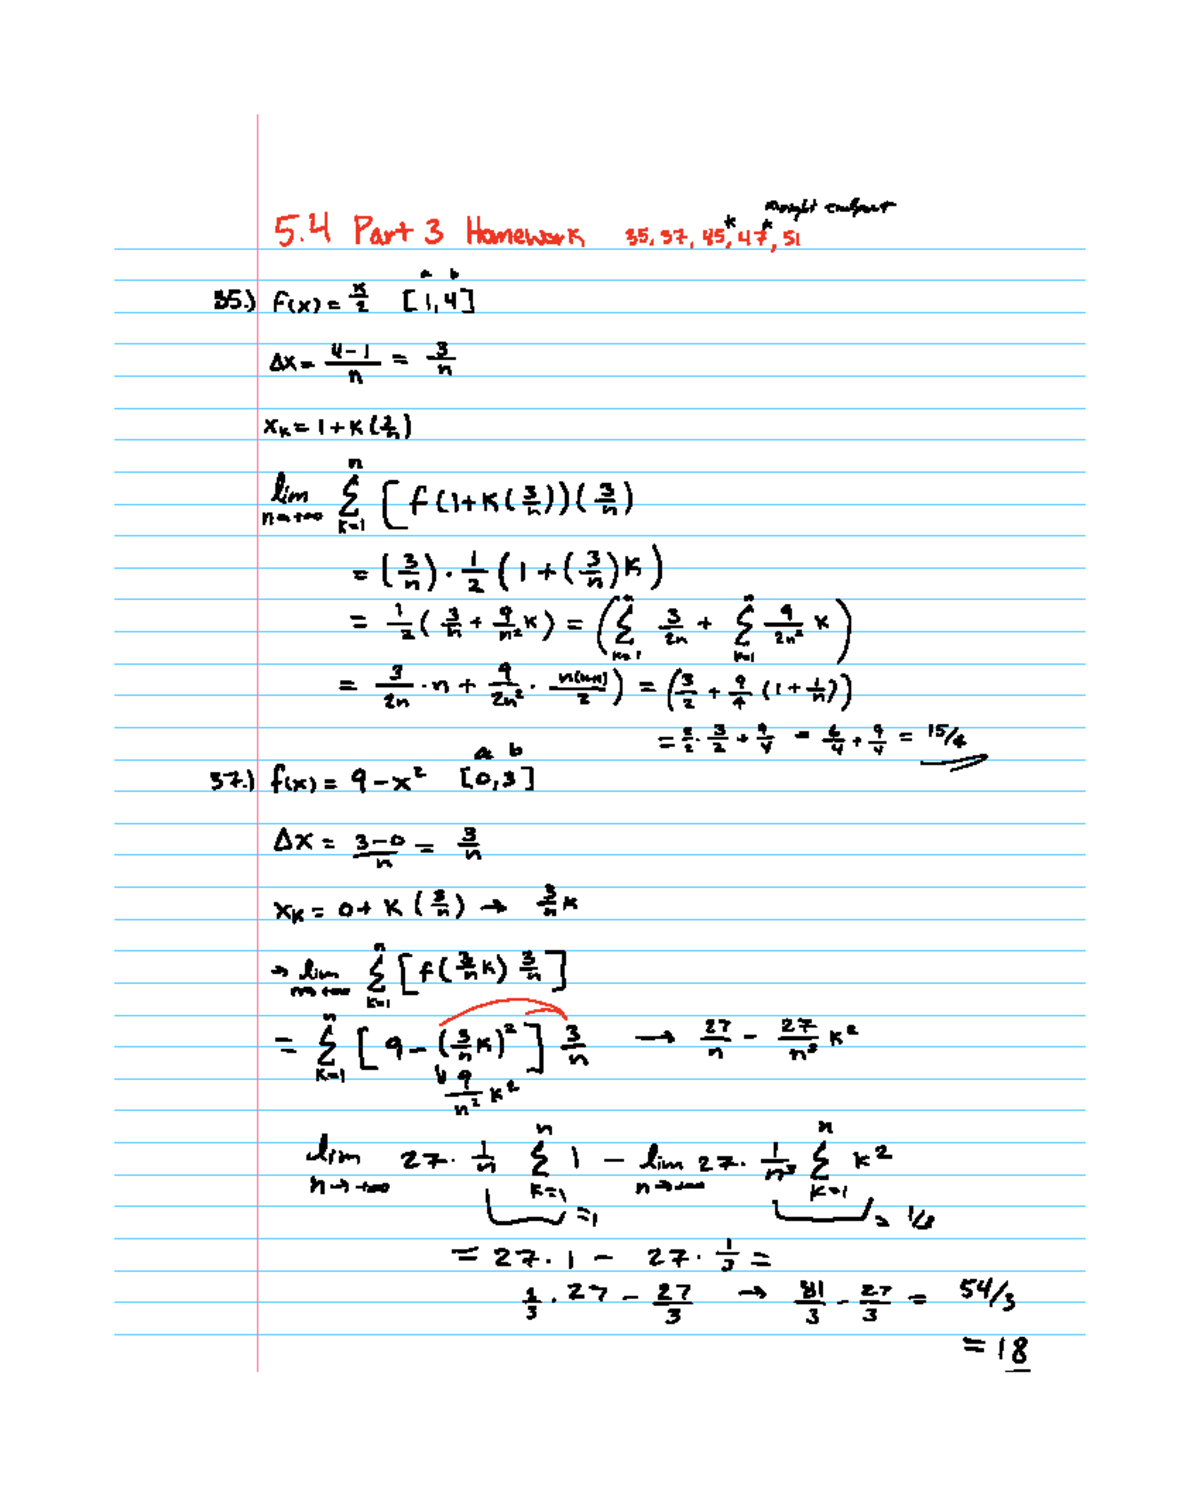 right endpoint
5.4 Part 3 Homework 35, 37, 45*, 47*, 51
a b
35.) f(x) = x/2 [1,4]
Δx = (4-1)/n = 3/n
xₖ = 1 + K(3/n)
lim n→+∞ Σ k=1 n [f(1+K(3/n))(3/n)
= (3/n)·1/2(1+(3/n)K)
= 1/2(3/n + 9/n² K) = (Σ k=1 n 3/2n + Σ k=1 n 9/2n² K)
= 3/2n · n + 9/2n² · n(n+1)/2) = (3/2 + 9/4(1+1/n))
= 2/2 · 3/2 + 9/4 = 6/4 + 9/4 = 15/4
a b
37.) f(x) = 9-x² [0,3]
Δx = (3-0)/n = 3/n
xₖ = 0 + K(3/n) → 3/n K
→ lim n→+∞ Σ k=1 n [f(3/n K) 3/n]
= Σ k=1 n [9-(3/n K)²] 3/n → 27/n - 27/n³ K²
9/n² K²
lim n→+∞ 27 · 1/n Σ k=1 n 1 - lim n→+∞ 27 · 1/n³ Σ k=1 n K²
=1 = 1/3
= 27 · 1 - 27 · 1/3 =
3/3 · 27 - 27/3 → 81/3 - 27/3 = 54/3
= 18